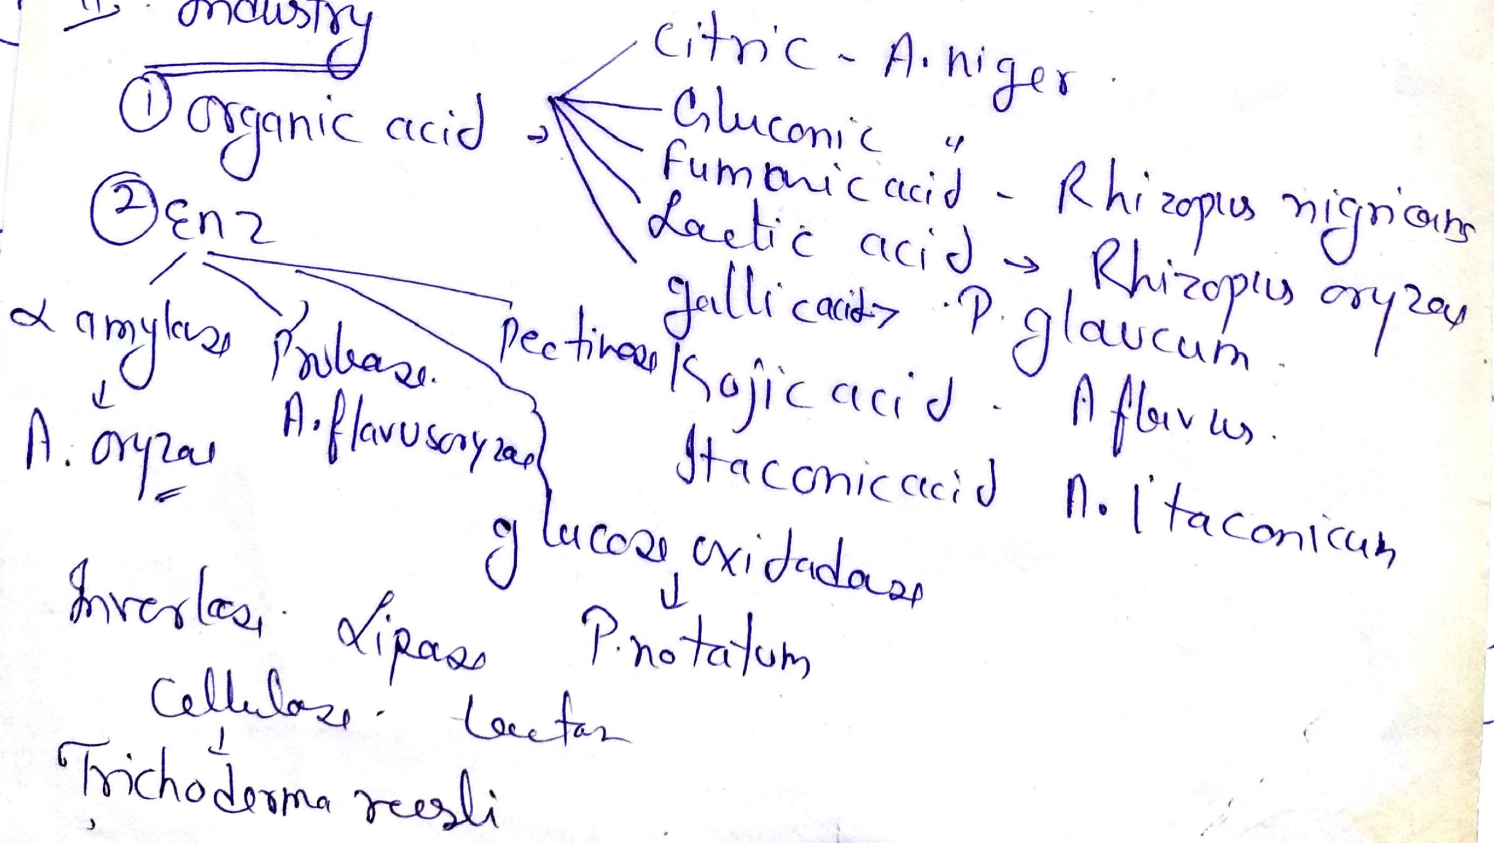 II. Industry
① organic acid →
Citric - A. niger
Gluconic "
Fumaric acid - Rhizopus nigricans
Lactic acid → Rhizopus oryzae
gallic acid → P. glaucum
Kojic acid . A flavus.
Itaconic acid A. Itaconicum
② Enz
α amylase
↓
A. oryzae
Protease.
A. flavus oryzae
Pectinase
glucose oxidadase
↓
P. notatum
Invertase. Lipase
Cellulase. Lactas
↓
Trichoderma reesli